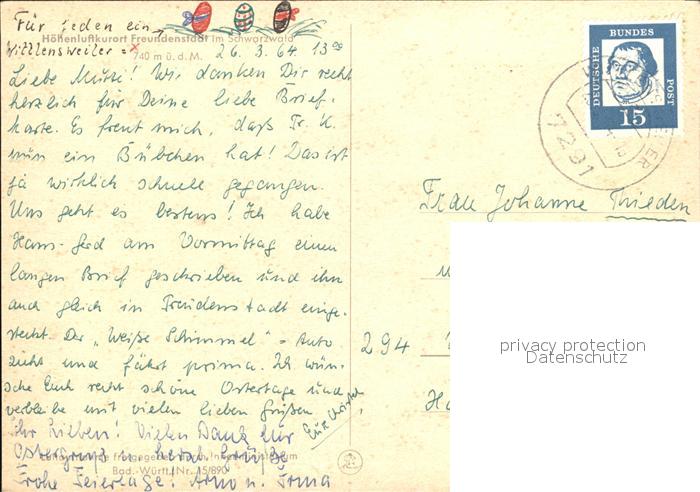 Für jeden ein
Höhenluftkurort Freudenstadt im Schwarzwald
Wittlensweiler = x 740 m ü. d. M. 26.3.64 13⁰⁰
Liebe Mutti! Wir danken Dir recht
herzlich für Deine liebe Brief-
karte. Es freut mich, daß Fr. K.
nun ein Bübchen hat! Das ist
ja wirklich schnell gegangen.
Uns geht es bestens! Ich habe
Hans-Gerd am Vormittag einen
langen Brief geschrieben und ihn
auch gleich in Freudenstadt einge-
steckt. Der „Weiße Schimmel" = Auto
zieht und fährt prima. Ich wün-
sche Euch recht schöne Ostertage und
verbleibe mit vielen lieben Grüßen
Eure
Ihr Lieben! Vielen Dank für
Ostergruß u. herzl. Grüße
Frohe Feiertage! Arno u. Irma
freigegeben
Bad.-Württ. Nr. 15/890
DEUTSCHE BUNDES POST
15
7291
Frau Johanne Thieden
294
privacy protection
Datenschutz